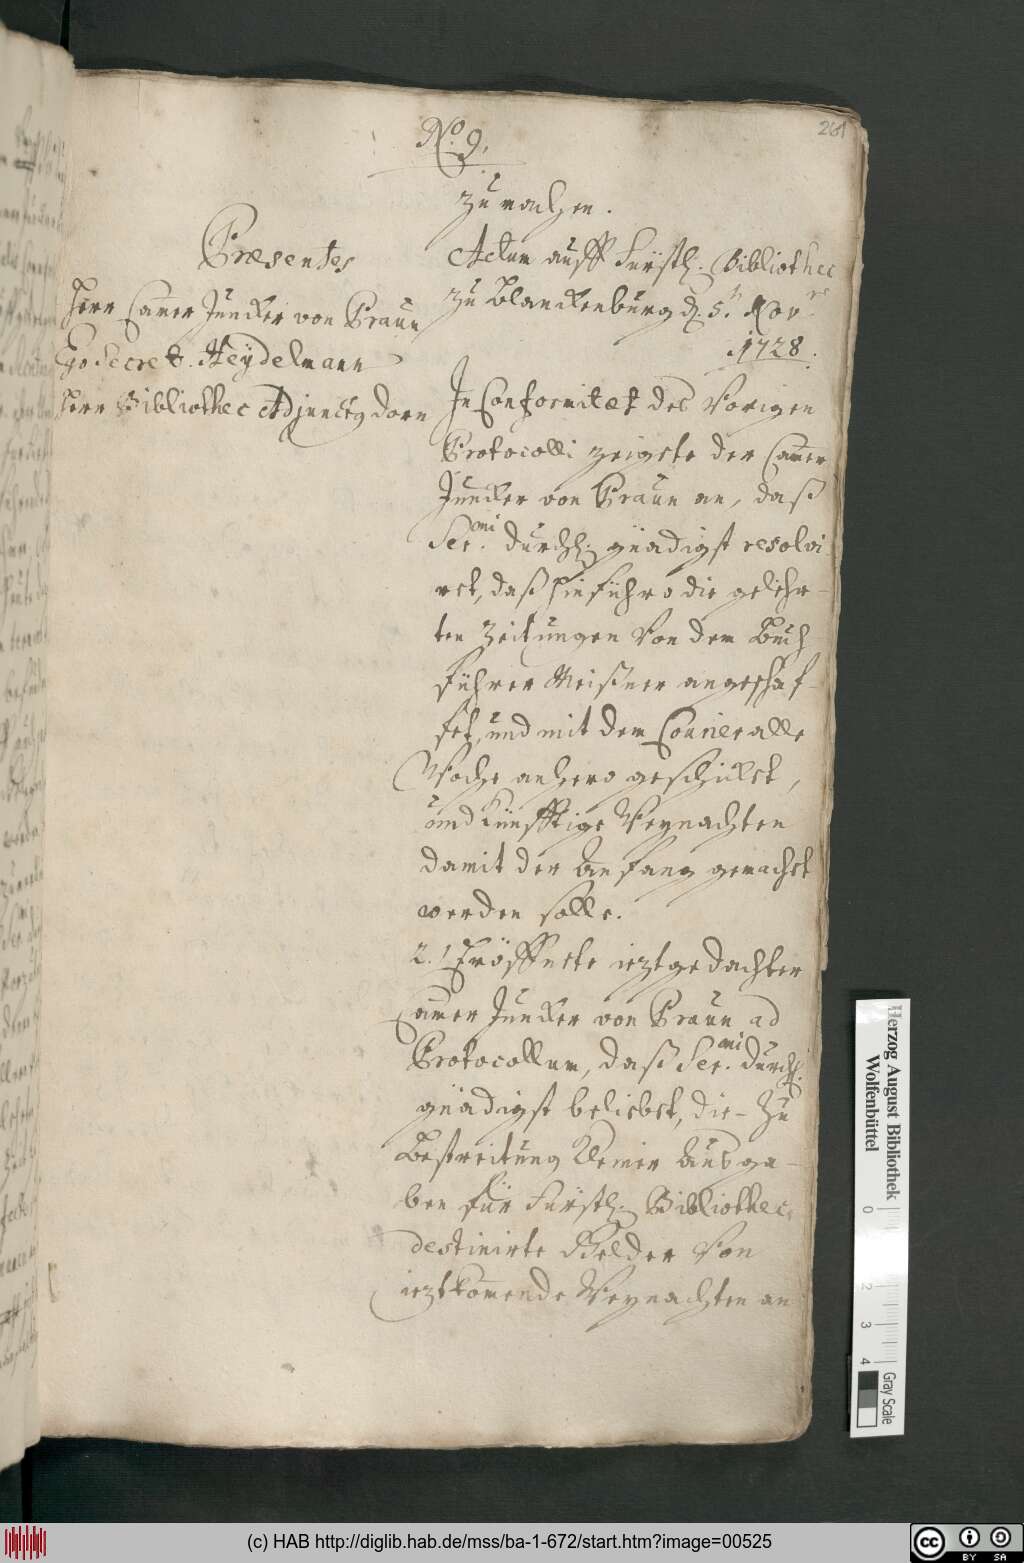 261
No. 9.
zu machen.
Præsentes
Herr Cam̄er Juncker von Praun
Ego Secret. Heydelmann
Herr Bibliothec Adjunctus Dorn
Actum auff Fürstl. Bibliothec
zu Blanckenburg d. 5. Nov.
1728.
In Conformitet des Vorigen
Protocolli zeigete der Cam̄er
Juncker von Praun an, daß
Ser.mi Durchl. gnädigst resolvi-
ret, daß hinführo die gelehr-
ten Zeitungen von dem Buch
führer Meißner angeschaf-
fet, und mit dem Courier alle
Woche anhero geschicket,
und künfftige Weynachten
damit der Anfang gemachet
werden solle.
2.) Eröffnete ieztgedachter
Cam̄er Juncker von Praun ad
Protocollum, daß Ser.mi Durchl.
gnädigst beliebet, die zu
Bestreitung kleiner Ausga-
ben für Fürstl. Bibliothec
destinirte Gelder von
ieztkom̄ende Weynachten an
Herzog August Bibliothek
Wolfenbüttel
0
2
3
4
Gray Scale
(c) HAB http://diglib.hab.de/mss/ba-1-672/start.htm?image=00525
cc
BY SA